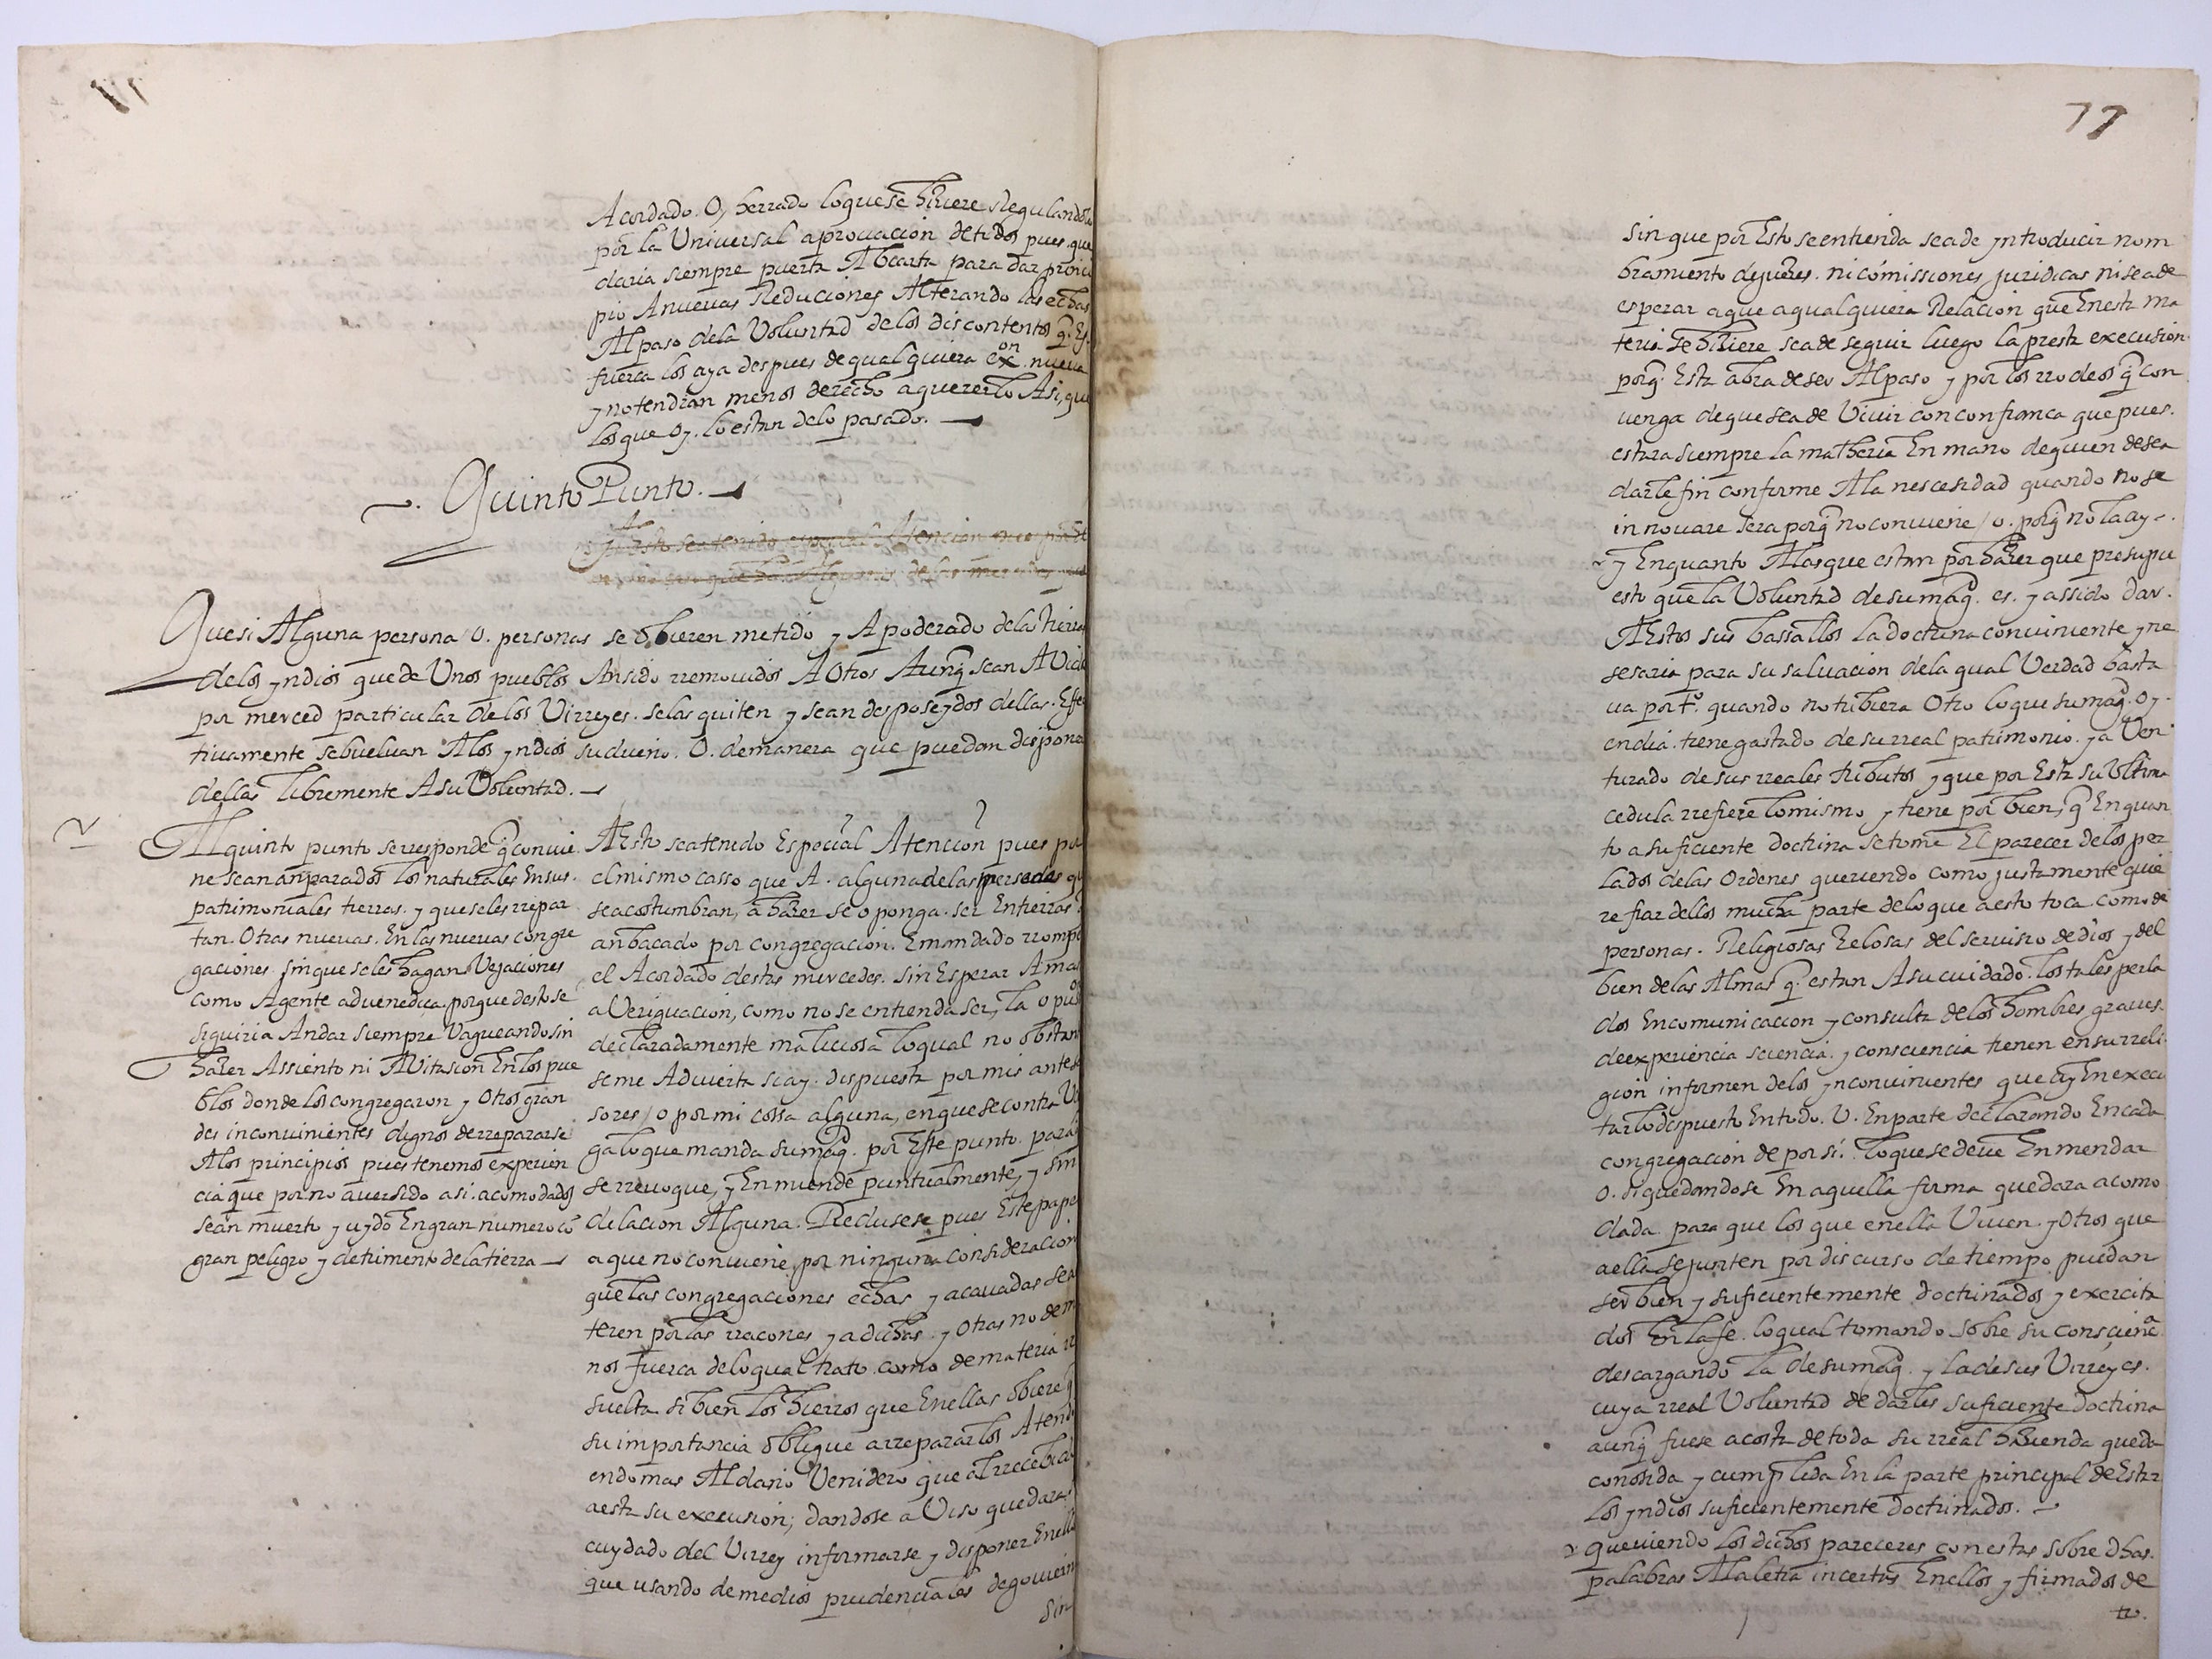 Acordado. O, herrado loquese hiziere Regulandolo
por la Universal aprovacion de todos pues. que
daria siempre puerta Abearta para dar princi
pio Anuevas Reduciones Alterando las echas
Alpaso dela Voluntad de los discontentos q. Es.
fuerca los aya despues de qualquiera exon. nueva
y notendran menos derecho aquererlo Asi, que
los que oy. lo estan delo pasado.
Quinto Punto.
A Esto seatenido especial Atencion
Quesi Alguna persona o. personas se obieren metido y Apoderado dela tierra
delos yndios que de Unos pueblos Ansido rremouidos A Otros Aunq sean Avido
por merced particular de los Virreyes. selas quiten y sean desposeydos dellas. Effe
tiuamente sebueluan Alos yndios sudueño. O. demanera que puedan disponer
dellas libremente Asu Voluntad.
Alquinto punto serresponde q conuie
ne sean anparados los naturales Ensus.
patrimoniales tierras. y queseles rrepar
tan. Otras nuevas. En las nuevas congre
gaciones. sinque seles hagan Vejaciones
como Agente aduenedica. porque destose
siguiria Andar siempre Vagueando sin
hazer Assiento ni Avitascion En los pue
blos donde los congregaron y Otros gran
des inconuinientes dignos derrepararse
Alos principios pues tenemos experien
cia que por no aversido asi. acomodados
sean muerto y uydo En gran numero co
gran peligro y detrimento de la tierra
A Esto seatenido Especial Atencion pues por
el mismo casso que A. alguna de las mersedes q
se acostumbran, a hazer se oponga. ser En tierras
anbacado por congregacion. E mandado rrompe
el Acordado destas mercedes. sin Esperar A mas
aVeriguacion, como no se entienda ser, la opuon
declaradamente maliciossa loqual no obstan
se me Advierta siay. dispuesta por mis antese
sores / o por mi cossa alguna, en que se contra Ve
ga lo que manda sumagd. por Este punto. para
se rrevoque, y Enmiende puntualmente, y sin
dilacion Alguna. Redusese pues Este pape
a que no conuiene, por ninguna consideracion
que las congregaciones echas y acauadas se al
teren por las rracones ya dichas. y Otras no de m
nos fuerca delo qual trato. como de materia rr
suelta si bien los hierros que En ellas obiere q
su importancia obligue arrepararlos Atendi
endo mas Al daño Venidero que al rrecebido
a esta su execusion; dandose aViso quedara
cuydado del Virrey informarse y disponer En ello
que usando de medios prudenciales de gouiern
Sin
77
Sin que por Esto se entienda sea de yntroducir nom
bramiento de juezes. ni cómissiones juridicas ni sea de
esperar a que a qualquiera Relacion que En esta ma
teria se hiziere sea de seguir luego la presta execusion.
porq. Esta abra de ser Al paso y por los rrodeos q con
uenga de que sea de Vivir con confianca que pues.
estara siempre la matheria En mano de quien desea
darle fin conforme A la nescesidad quando no se
innouare sera porq no conuiene / o. porq no la ay.
y En quanto A las que estan por hazer que presupu
esto que la Voluntad de sumagd. es. y assido dar.
A Estos sus bassallos la doctrina conuiniente y ne
sesaria para su saluacion de la qual Verdad basta
ua por to. quando no tubiera Otro lo que sumagd. oy.
endia. tiene gastado de su rreal patrimonio. y a Ven
turado de sus rreales tributos y que por Esta su Ultima
cedula rrefiere lo mismo y tiene por bien, q En quan
to a suficiente doctrina se tome El parecer de los per
lados de las Ordenes queriendo como justamente quie
re fiar dellos mucha parte delo que a esto toca. como de
personas. Religiosas Zelosas del seruisio de dios y del
bien de las Almas q. estan A su cuidado. los tales perla
dos En comunicacion y consulta de los hombres graues.
de experiencia sciencia. y consciencia tienen en su rreli.
gion informen de los ynconuinientes que ay En execu
tar lo dispuesto En todo. O. En parte declarando En cada
congregacion de por si. lo que se deue Enmendar
o. si quedandose En aquella forma quedara acomo
dada. para que los que en ella Viven. y Otros que
a ella se junten por discurso de tiempo puedan
ser bien y suficientemente doctrinados y exercita
dos En la fe. lo qual tomando. sobre su consciena
descargando la de sumagd. y la de sus Virreyes.
cuya rreal Voluntad de darles suficiente doctrina
aunq fuese a costa de toda su rreal hazienda queda
conosida y cumplida En la parte principal de Estar
los yndios suficientemente doctrinados.
que viendo los dichos pareceres con estas sobre dhas.
palabras A la letra incertas En ellos y firmados de
to.